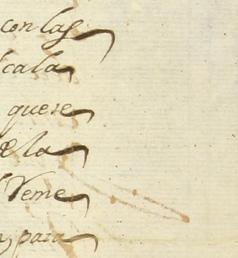 con las
cala
quese
de la
Veme
para